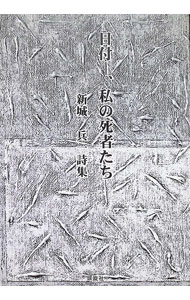 日付一、私の死者たち
新城兵一 詩集